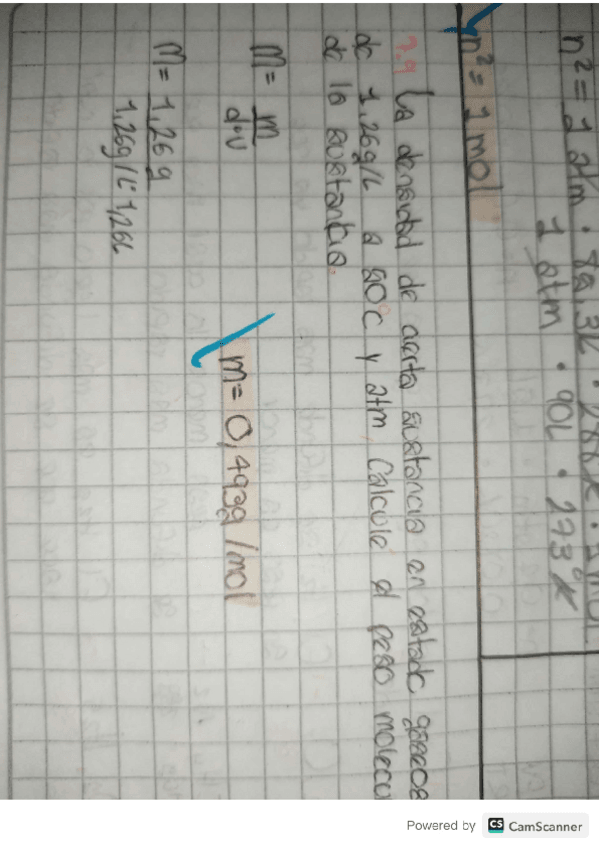 n² = 1 atm · 82,3L ·
1 atm · 90L · 273°K
n² = 1 mol
7.9 La densidad de cierta sustancia en estado gaseos
de 1,26g/L a 50°C y atm. Calcule el peso molecu
de la sustancia.
M = m
d·v
M = 1,26 g
1,26g/L · 1,26L
m = 0,4939g/mol
Powered by CS CamScanner